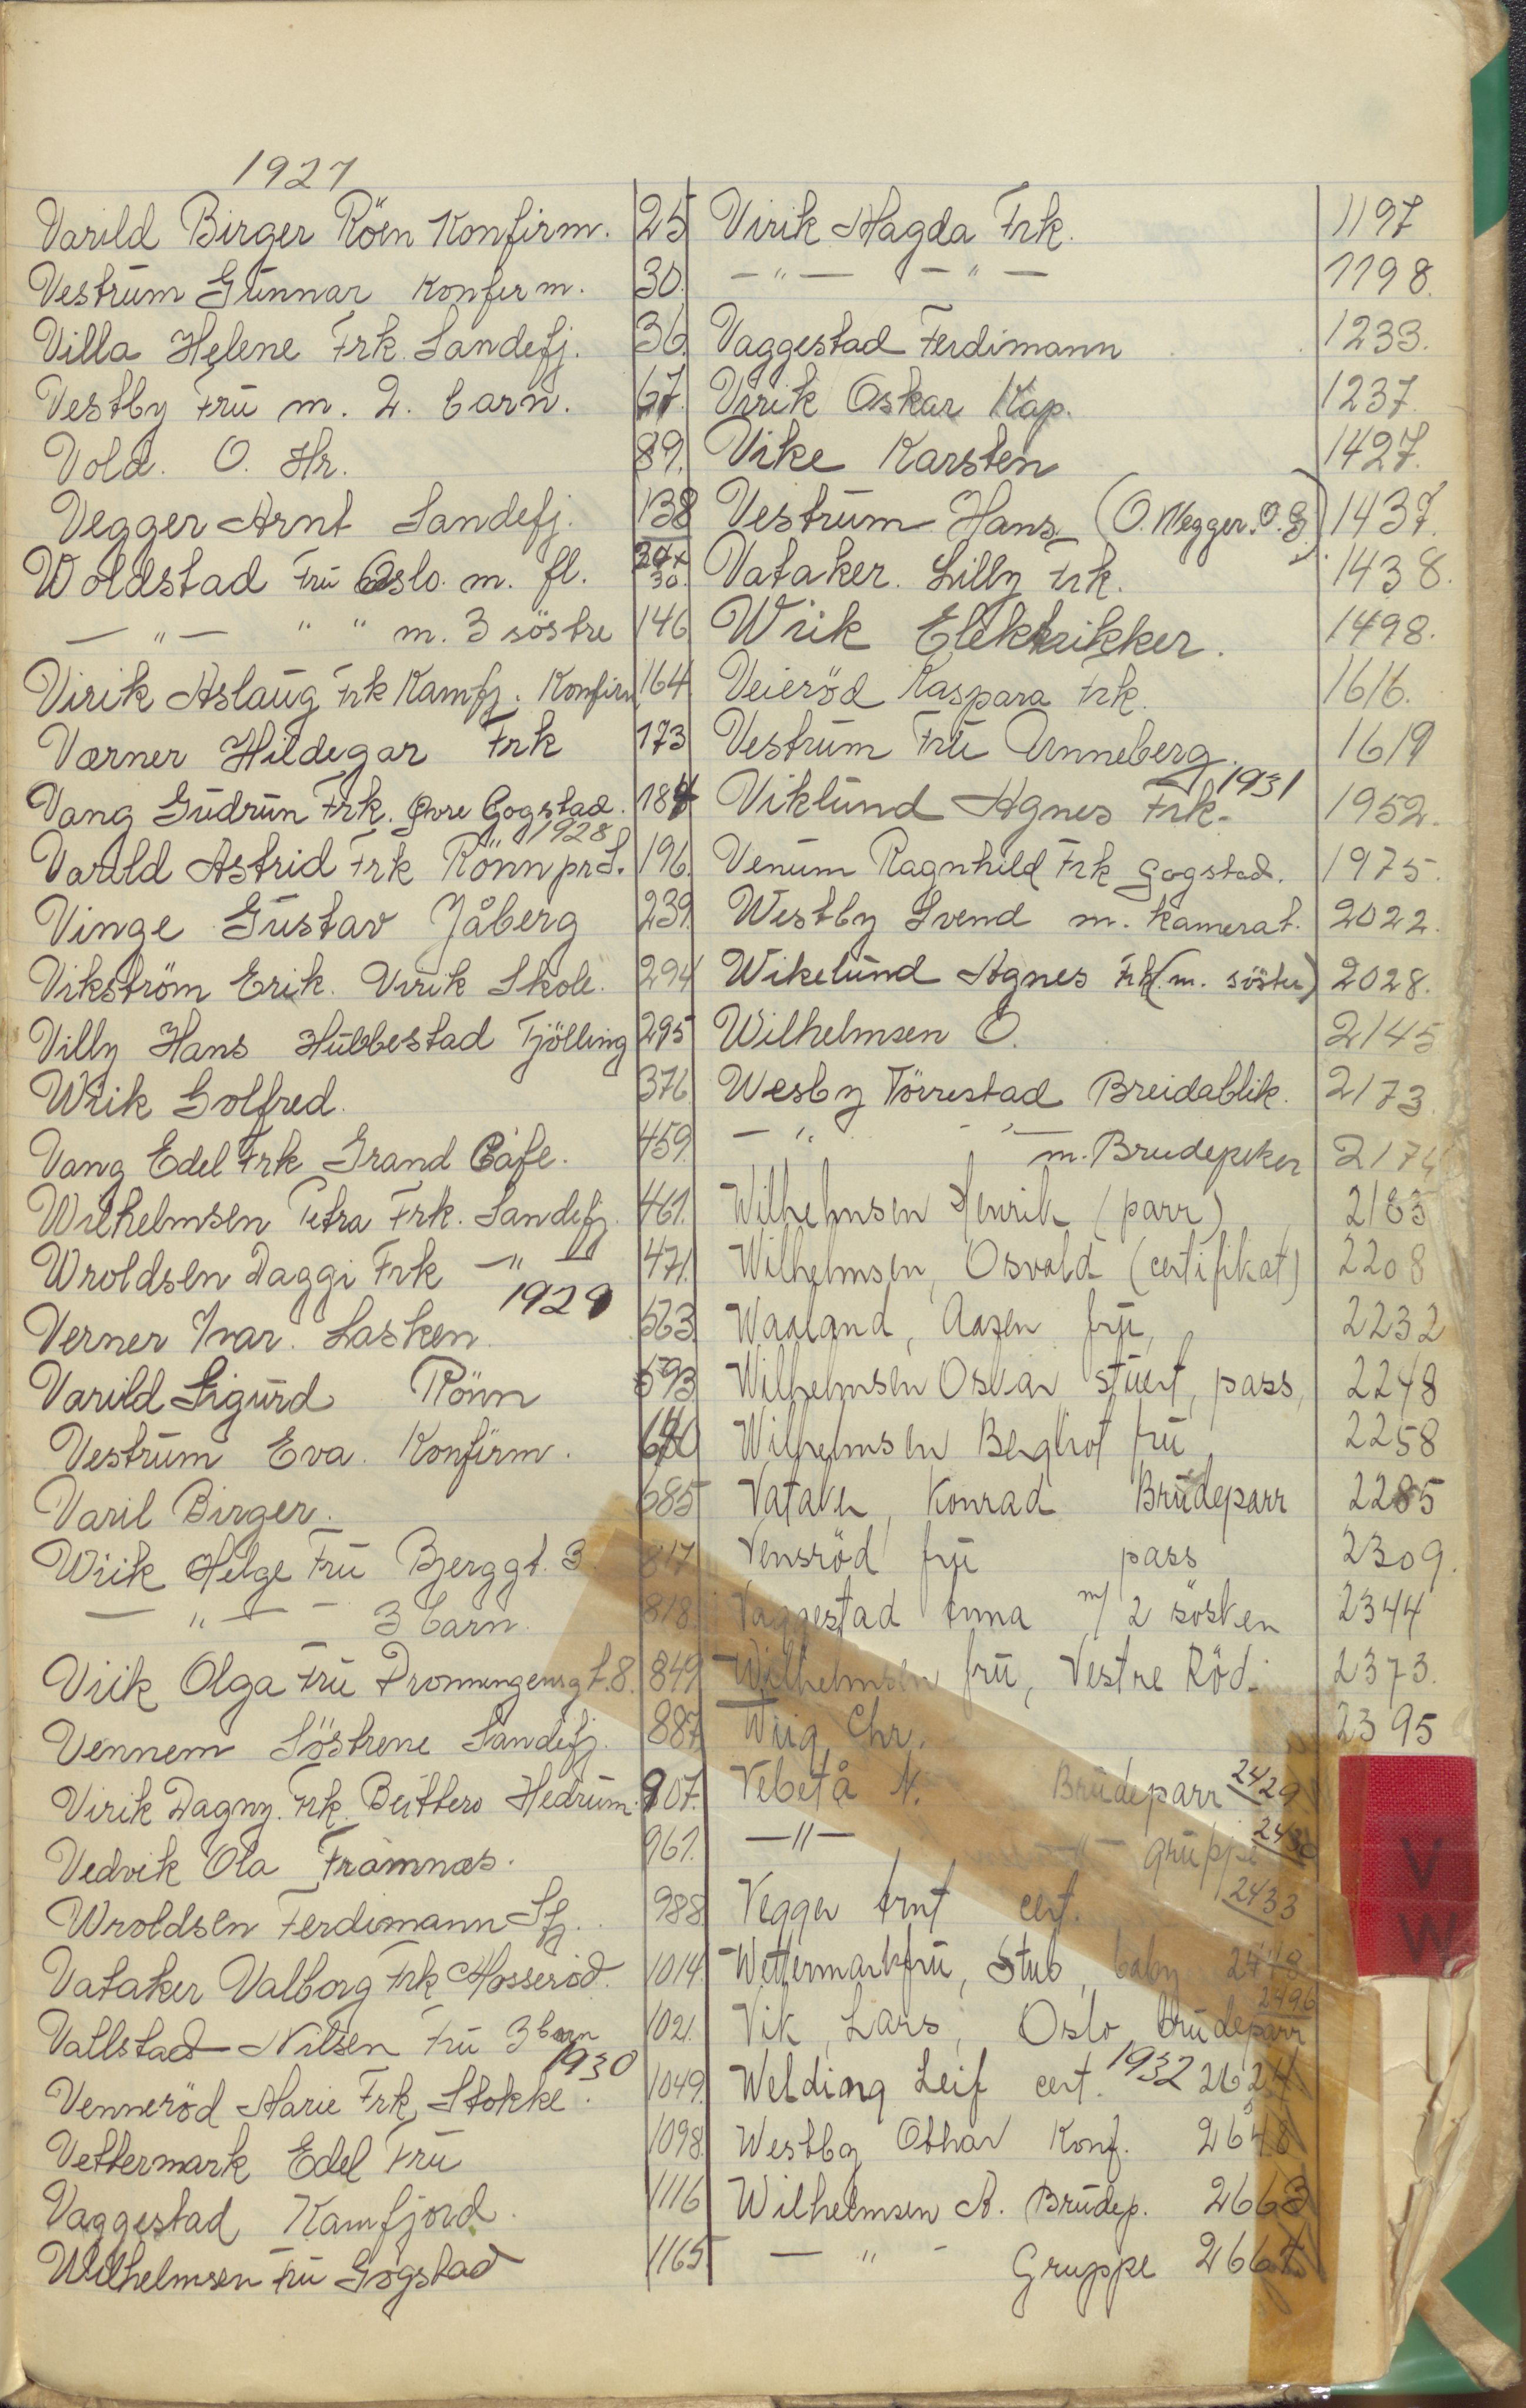 1927
Varild Birger Röen Konfirm. 25
Vestrum Gunnar Konfirm. 30.
Villa Helene Frk. Sandefj. 36.
Vestby Fru m. 2. barn. 67.
Vold. O. Hr. 89.
Vegger Arnt Sandefj. 138
Woldstad Fru Oslo. m. fl. 30.
— " — " " m. 3 söstre 146
Virik Aslaug Frk Kamfj. Konfirm 164
Værner Hildegar Frk 173
Vang Gudrun Frk. Øvre Gogstad. 184
1928
Varild Astrid Frk Rönn pr S. 196.
Vinge Gustav Jåberg 239.
Vikström Erik. Virik Skole. 294
Villy Hans Hubbestad Tjölling 295
Wiik Golfred. 376.
Vang Edel Frk Grand Cafe. 459.
Wilhelmsen Petra Frk. Sandefj. 461.
Wroldsen Daggi Frk — " — 471.
1929
Verner Ivar. Lasken 563.
Varild Sigurd Rönn 593
Vestrum Eva. Konfirm. 640
Varil Birger. 685
Wiik Helge Fru Bjerggt. 3 817.
— " — - 3 barn. 818.
Viik Olga Fru Dronningensgt. 8. 849
Vennem Söstrene Sandefj. 887.
Virik Dagny. Frk. Bettero Hedrum. 907.
Vedvik Ola Framnæs. 961.
Wroldsen Ferdimann Sfj. 988
Vataker Valborg Frk Mosseröd. 1014.
Vallstad Nilsen Fru 3 barn 1021.
1930
Venneröd Marie Frk, Stokke. 1049.
Vettermark Edel Fru 1098.
Vaggestad Kamfjord. 1116
Wilhelmsen Fru Gogstad 1165.
Virik Magda Frk. 1197
— " — — " — 1198.
Vaggestad Ferdimann 1233.
Virik Oskar Kap. 1237.
Vike Karsten 1427.
Vestrum Hans (O. Wegger. O. G) 1437.
Vataker. Lilly Frk. 1438.
Wiik Elektrikker. 1498.
Veieröd Kaspara Frk. 1616.
Vestrum Fru Unneberg. 1619
1931
Viklund Agnes Frk. 1952.
Venum Ragnhild Frk Gogstad. 1975.
Westby Svend m. kamerat. 2022.
Wikelund Agnes Frk (m. söster) 2028.
Wilhelmsen O. 2145
Wesby Törrestad Breidablik. 2173.
— " - " — m. Brudepiker 2174
Wilhelmsen Henrik (parr) 2183
Wilhelmsen, Osvald (certifikat) 2208
Waaland, Aasen fru, 2232
Wilhelmsen Oskar stuert, pass, 2248
Wilhelmsen Bergliot fru 2258
Vataker, Konrad Brudeparr 2285
Vensröd fru pass 2309.
Vaggestad Anna m/ 2 sösken 2344
Wilhelmsen fru, Vestre Röd. 2373.
Wiig Chr. 2395
Vebetå N. Brudeparr 2429
— " — — " — gruppe 2430
Vegger Arnt cert. 2433
Wettermark fru, Stub, baby 2478
Vik, Lars, Oslo brudeparr 2496
Welding Leif cert. 1932 2624
Westby Othar Konf. 2648
Wilhelmsen A. Brudep. 2663
— " - Gruppe 2664
V
W